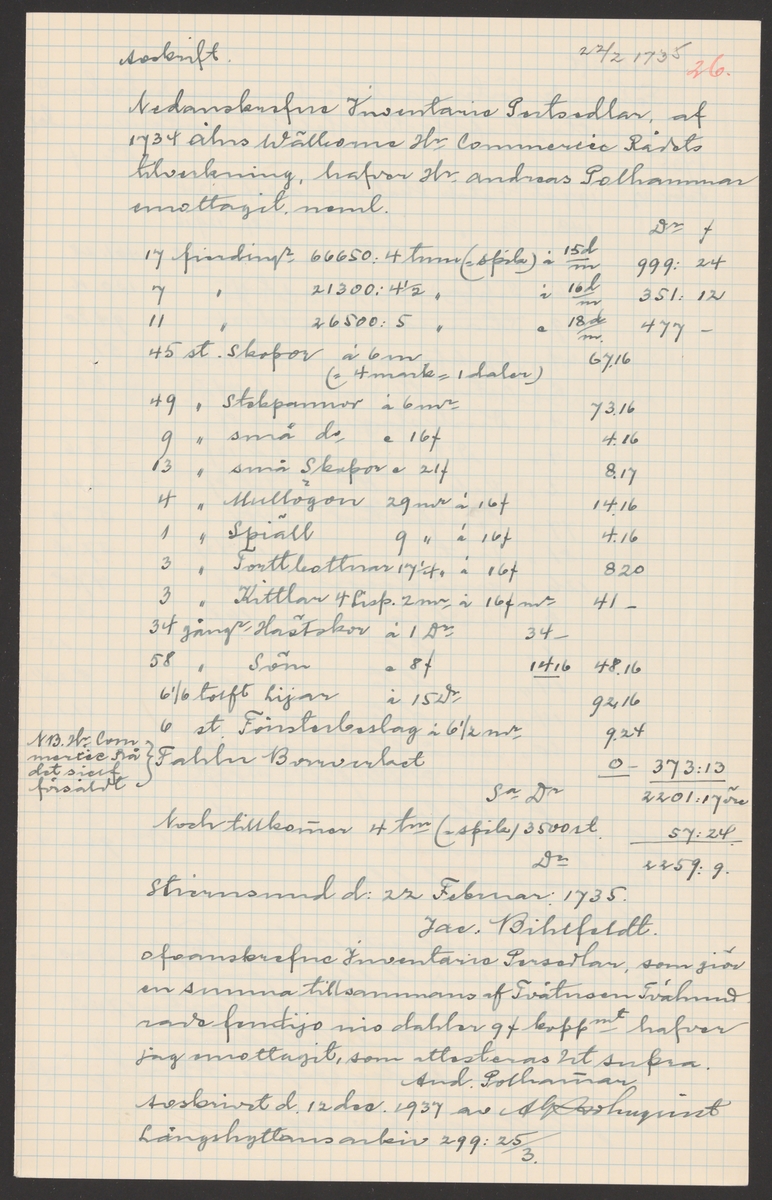 Avskrift.
22/2 1735
26.
Nedanskrefne Inventarie Pertsedlar, af
1734 åhrs Wälborne Hr Commercie Rådets
tilverkning, hafver Hr. Andreas Polhammar
emottagit. neml.
Dr f
17 fierdingr 66650: 4 tum (= spik) à 15d/m 999: 24
7 " 21300: 4½ " à 16d/m 351: 12
11 " 26500: 5 " a 18d/m. 477 –
45 st. Skopor à 6 m 67,16
(= 4 mark = 1 daler)
49 " Stekpannor à 6 mr 73.16
9 " små do a 16f 4.16
13 " små Skopor a 21f 8.17
4 " Mullögon 29 mr à 16f 14.16
1 " Spiäll 9 " à 16f 4.16
3 " Torttbottnar 17¼ " à 16f 8 20
3 " Kittlar 4 Lisp. 2 mr à 16f mr 41 –
34 gångr Hästskor à 1 Dr 34 –
58 " Söm a 8f 14 16 48.16
6 1/6 tolft Lijar à 15 Dr 92,16
6 st. Fönsterbeslag à 6 1/2 mr 9.24
N.B. Hr Com
mercie Rå
det sielf
försåldt
Fahlu Borrverket 0 – 373:13
Sa Dr 2201:17 öre
Noch tillkom̄er 4 tm (= spik) 3500 st. 57: 24
Dr 2259: 9.
Stiernsund d: 22 Februar: 1735.
Jac. Bihlfeldt.
ofvanskrefne Inventarie Persedlar, som giör
en summa tillsammans af Tvåtusen Tvåhund
rade femtijo nio dahler 9f koppmt hafver
jag emottagit, som attesteras Ut supra.
And. Polham̄ar
Avskrivet d. 12 dec. 1937 av
Långshyttans arkiv 299: 25/3.